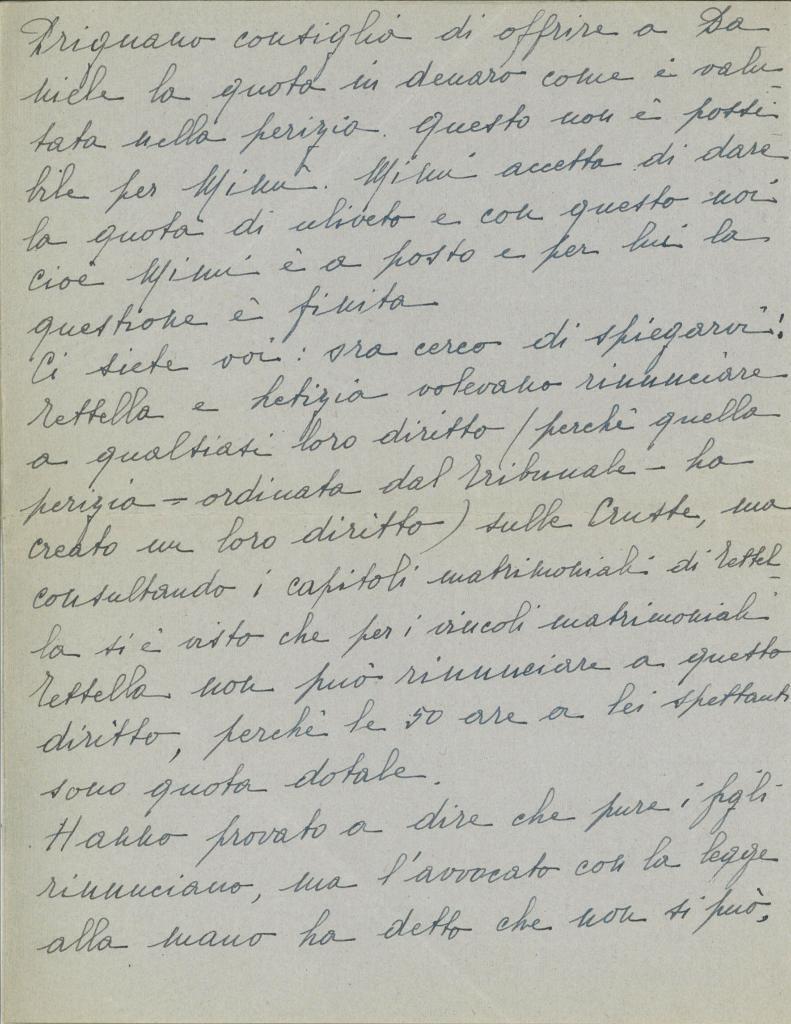 Drignano consiglia di offrire a Da
niele la quota in denaro come è valu
tata nella perizia. Questo non è possi
bile per Mimì. Mimì accetta di dare
la quota di uliveto e con questo noi
cioè Mimì è a posto e per lui la
questione è finita
Ci siete voi: ora cerco di spiegarvi:
Tettella e Letizia volevano rinunciare
a qualsiasi loro diritto (perchè quella
perizia = ordinata dal Tribunale - ha
creato un loro diritto) sulle Cruste, ma
consultando i capitoli matrimoniali di Tettel-
la si è visto che per i vincoli matrimoniali
Tettella non può rinunciare a questo
diritto, perchè le 50 are a lei spettanti
sono quota dotale.
Hanno provato a dire che pure i figli
rinunciano, ma l'avvocato con la legge
alla mano ha detto che non si può.